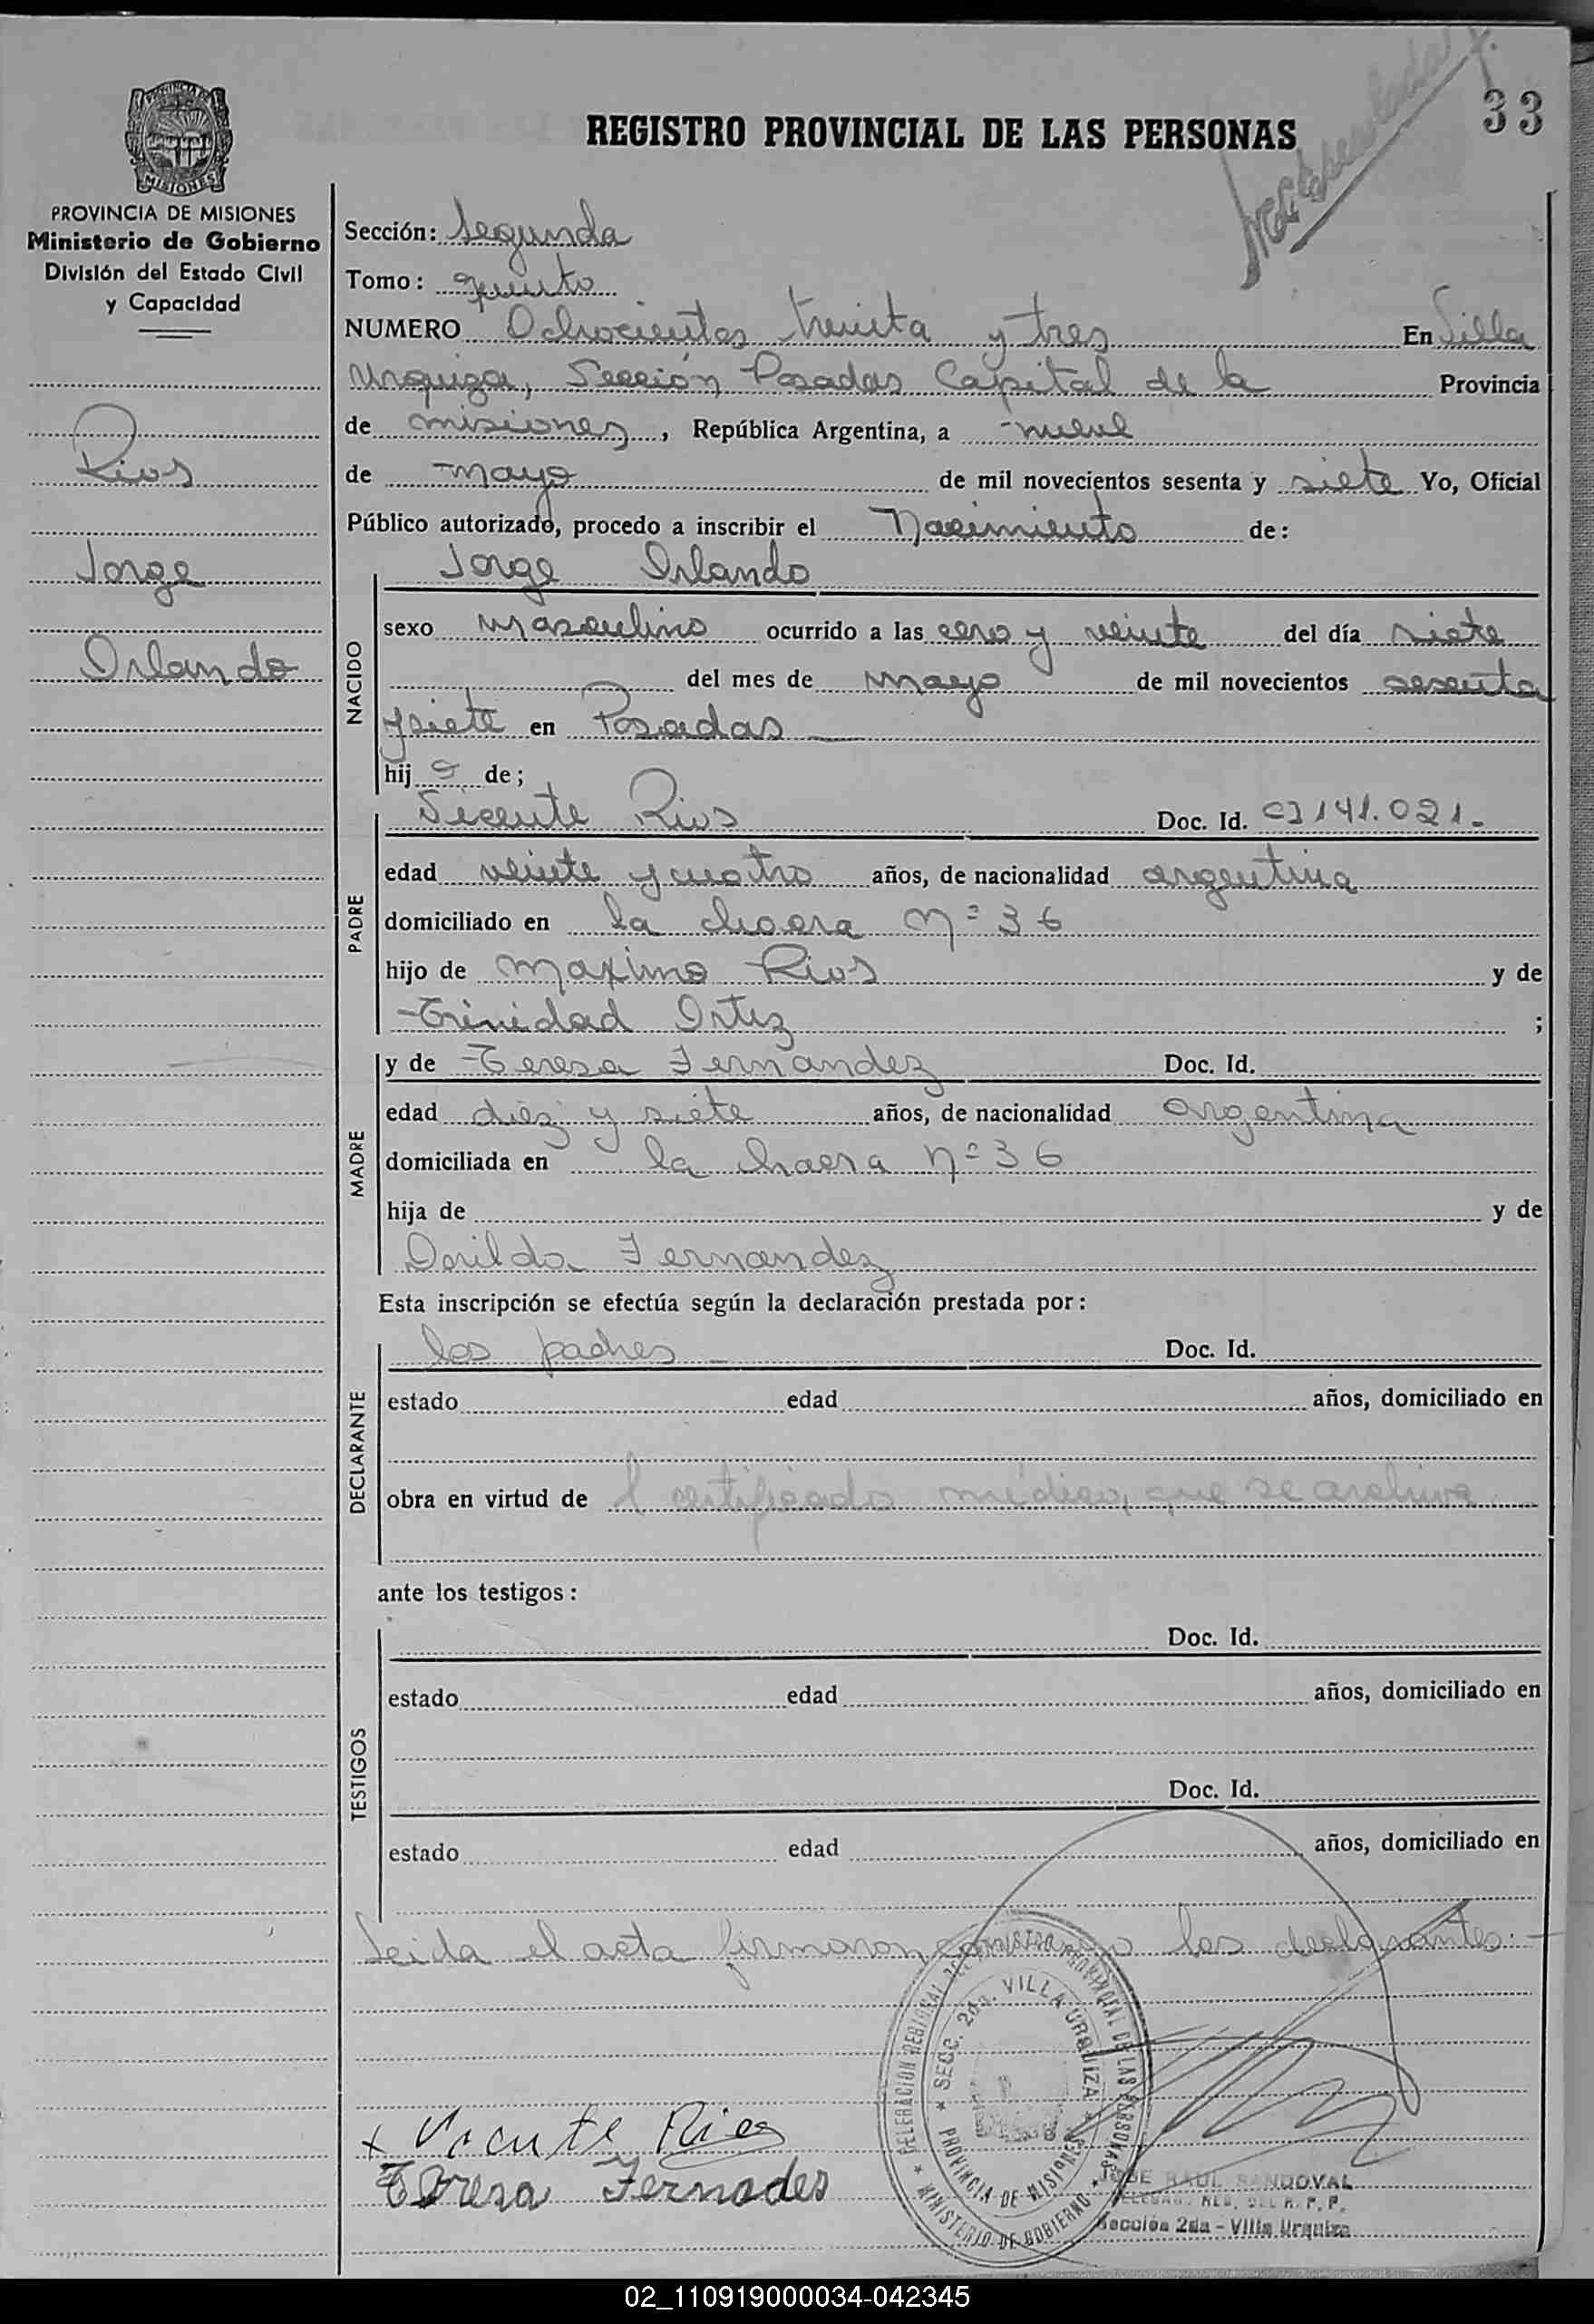 33
REGISTRO PROVINCIAL DE LAS PERSONAS
MISIONES
PROVINCIA DE MISIONES
Ministerio de Gobierno
División del Estado Civil
y Capacidad
Rios
Jorge
Orlando
Sección: Segunda
Tomo: quinto
NUMERO Ochocientos treinta y tres En Villa
Urquiza, Sección Posadas Capital de la Provincia
de misiones, República Argentina, a nueve
de mayo de mil novecientos sesenta y siete Yo, Oficial
Público autorizado, procedo a inscribir el Nacimiento de:
NACIDO
Jorge Orlando
sexo masculino ocurrido a las cero y veinte del día siete
del mes de mayo de mil novecientos sesenta
y siete en Posadas
hijo de;
PADRE
Vicente Rios Doc. Id. CI 141.021.-
edad veinte y cuatro años, de nacionalidad argentina
domiciliado en la chacra Nº 36
hijo de Maximo Rios y de
Trinidad Ortiz ;
MADRE
y de Teresa Fernandez Doc. Id.
edad diez y siete años, de nacionalidad argentina
domiciliada en la chacra nº 36
hija de y de
Dorilda Fernandez
Esta inscripción se efectúa según la declaración prestada por:
DECLARANTE
los padres Doc. Id.
estado edad años, domiciliado en
obra en virtud de l certificado médico, que se archiva
ante los testigos:
TESTIGOS
Doc. Id.
estado edad años, domiciliado en
Doc. Id.
estado edad años, domiciliado en
Leida el acta firmaron los declarantes.-
SECC. 2da. VILLA URQUIZA
PROVINCIA DE MISIONES
MINISTERIO DE GOBIERNO
x Vicente Rios
Teresa Fernades
JOSE RAUL SANDOVAL
Sección 2da - Villa Urquiza
02_110919000034-042345